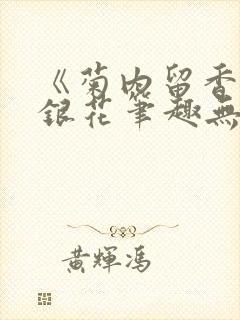 《菊内留香
銀花筆趣無
黃輝馮